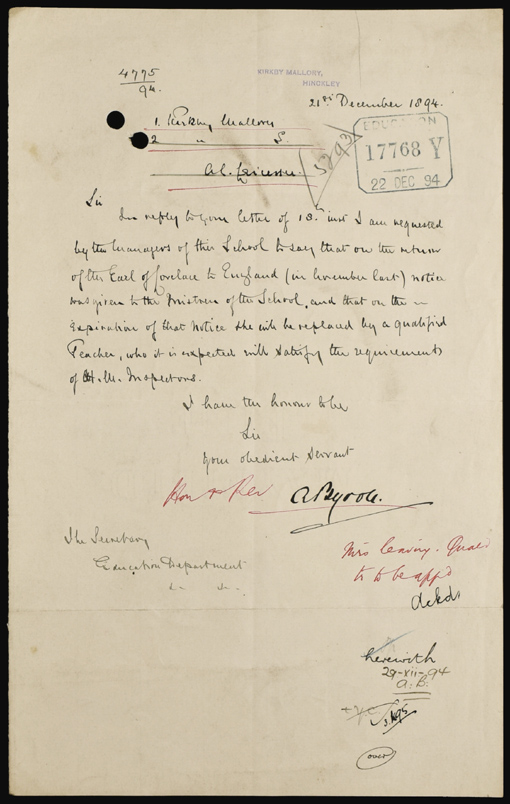 4775
94.
KIRKBY MALLORY,
HINCKLEY
21st December 1894.
1. Kirkby Mallory
2 " S.
5293
EDUCATION
17768 Y
22 DEC 94
Sir
In reply to your letter of 18th inst I am requested
by the Managers of this School to say that on the return
of the Earl of Lovelace to England (in November last) notice
was given to the Mistress of the School, and that on the
expiration of that notice she will be replaced by a qualified
Teacher, who it is expected will satisfy the requirements
of H.M. Inspectors.
I have the honour to be
Sir
Your obedient servant
Hon & Rev A Byron.
The Secretary
Education Department
Mrs leaving. Qual
to be appd
Ackd
herewith
29-xii-94
A.B.
(over)